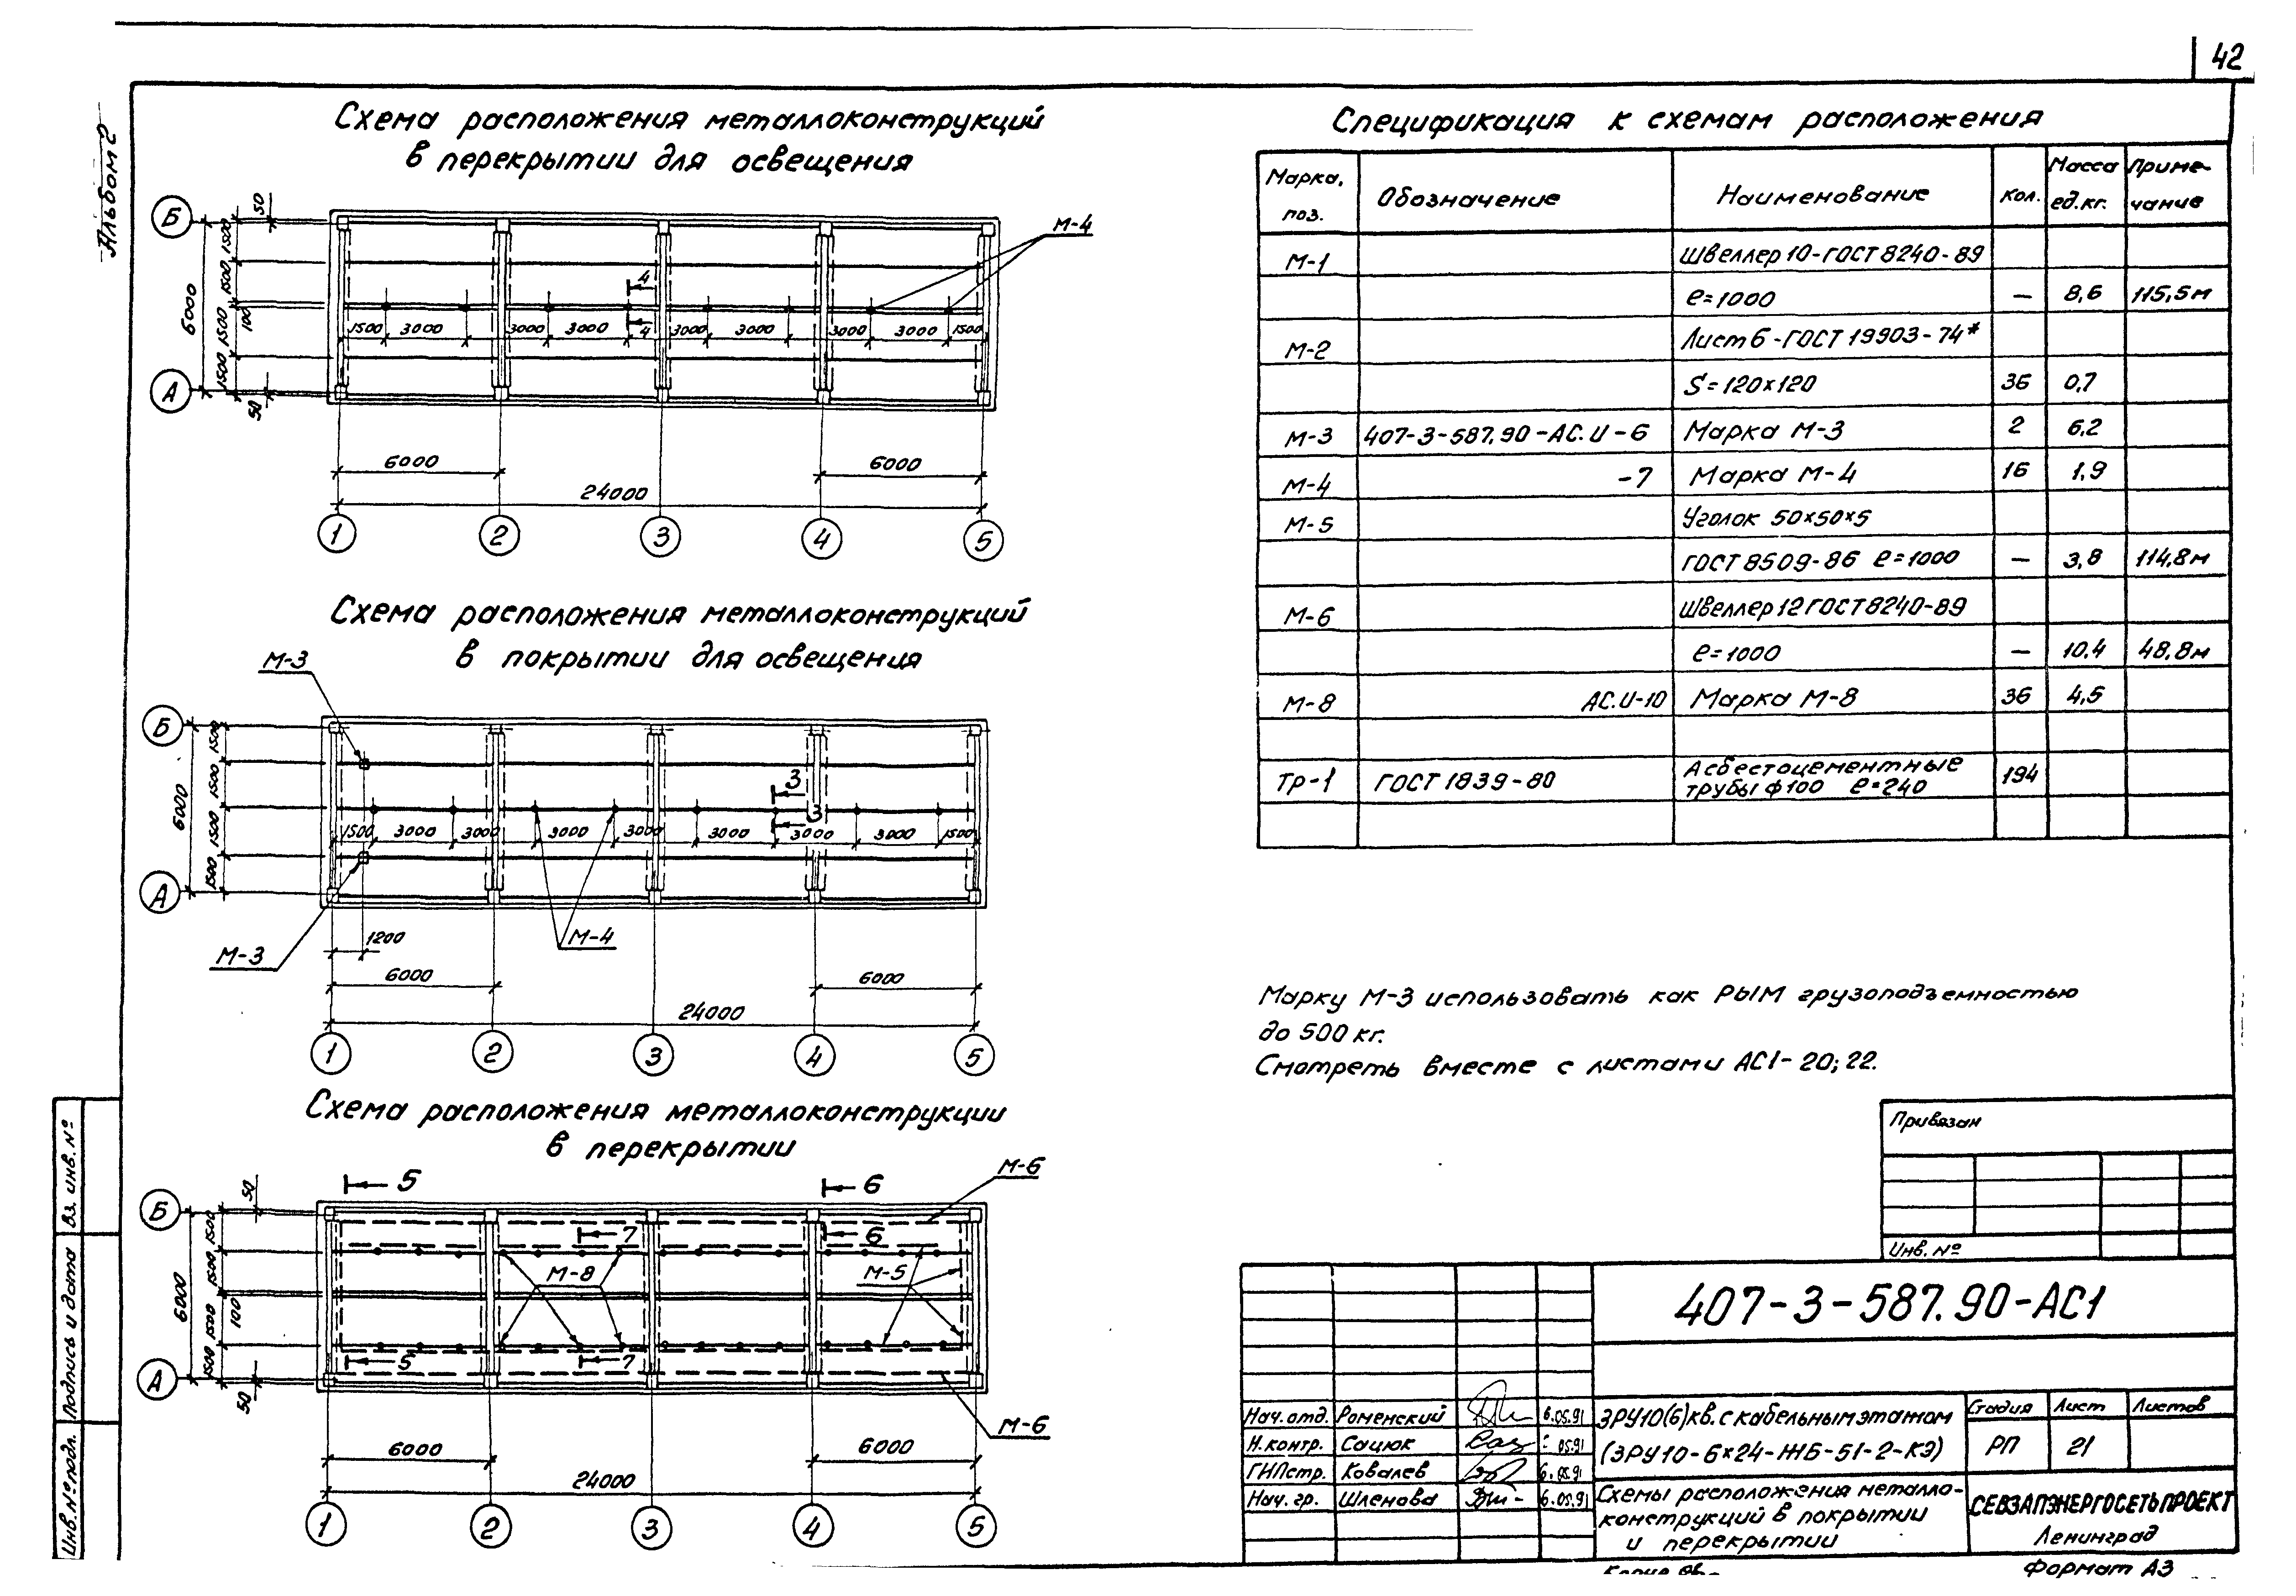 42
Альбом 2
Схема расположения металлоконструкций
в перекрытии для освещения
Б
А
50
1500
1500
1500
1500
100
6000
50
М-4
4
4
1500 3000 3000 3000 3000 3000 3000 3000 1500
6000
6000
24000
1 2 3 4 5
Схема расположения металлоконструкций
в покрытии для освещения
М-3
Б
А
1500
1500
1500
1500
6000
3
3
1500 3000 3000 3000 3000 3000 3000 3000 1500
М-3
1200
М-4
6000
6000
24000
1 2 3 4 5
Схема расположения металлоконструкции
в перекрытии
5
6
М-6
Б
А
50
1500
1500
1500
1500
100
6000
50
7
6
М-8
М-5
5
7
М-6
6000
6000
24000
1 2 3 4 5
Спецификация к схемам расположения
Марка, поз. Обозначение Наименование Кол. Масса ед.кг. Приме-чание
М-1 Швеллер 10-ГОСТ 8240-89
ℓ=1000 — 8,6 115,5м
М-2 Лист 6-ГОСТ 19903-74*
S=120×120 36 0,7
М-3 407-3-587.90-АС.И-6 Марка М-3 2 6,2
М-4 -7 Марка М-4 16 1,9
М-5 Уголок 50×50×5
ГОСТ 8509-86 ℓ=1000 — 3,8 114,8м
М-6 Швеллер 12 ГОСТ 8240-89
ℓ=1000 — 10,4 48,8м
М-8 АС.И-10 Марка М-8 36 4,5
Тр-1 ГОСТ 1839-80 Асбестоцементные 194
трубы ф100 ℓ=240
Марку М-3 использовать как РЫМ грузоподъемностью
до 500 кг.
Смотреть вместе с листами АС1-20; 22.
Привязан
Инв. №
407-3-587.90-АС1
Нач. отд. Роменский 6.05.91
Н. контр. Сацюк 05.91
ГИПстр. Ковалев 6.05.91
Нач. гр. Шленова 6.05.91
ЗРУ10(6)кв. с кабельным этажом
(ЗРУ10-6×24-ЖБ-51-2-КЭ)
Стадия Лист Листов
РП 21
Схемы расположения металло-
конструкций в покрытии
и перекрытии
СЕВЗАПЭНЕРГОСЕТЬПРОЕКТ
Ленинград
Формат А3
Инв.№подл. Подпись и дата Вз. инв. №